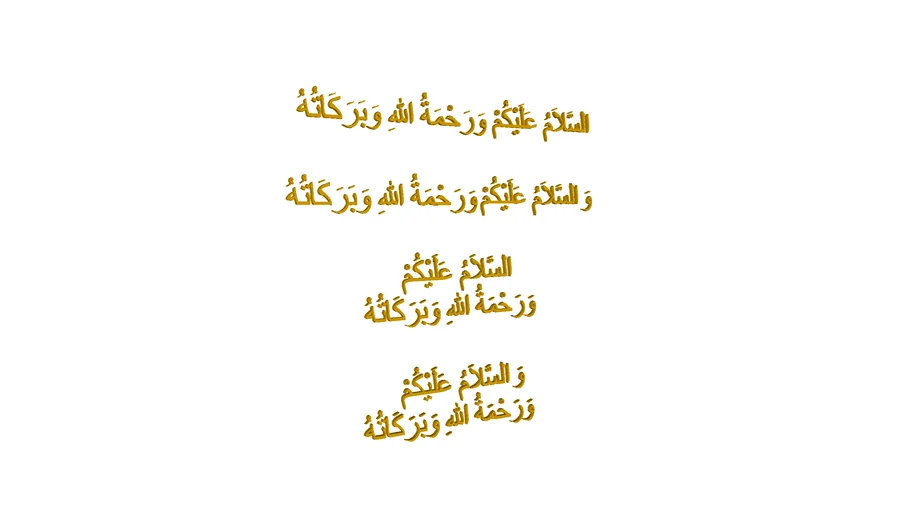 السَّلاَمُ عَلَيْكُمْ وَرَحْمَةُ اللهِ وَبَرَكَاتُهُ
وَ السَّلاَمُ عَلَيْكُمْ وَرَحْمَةُ اللهِ وَبَرَكَاتُهُ
السَّلاَمُ عَلَيْكُمْ
وَرَحْمَةُ اللهِ وَبَرَكَاتُهُ
وَ السَّلاَمُ عَلَيْكُمْ
وَرَحْمَةُ اللهِ وَبَرَكَاتُهُ